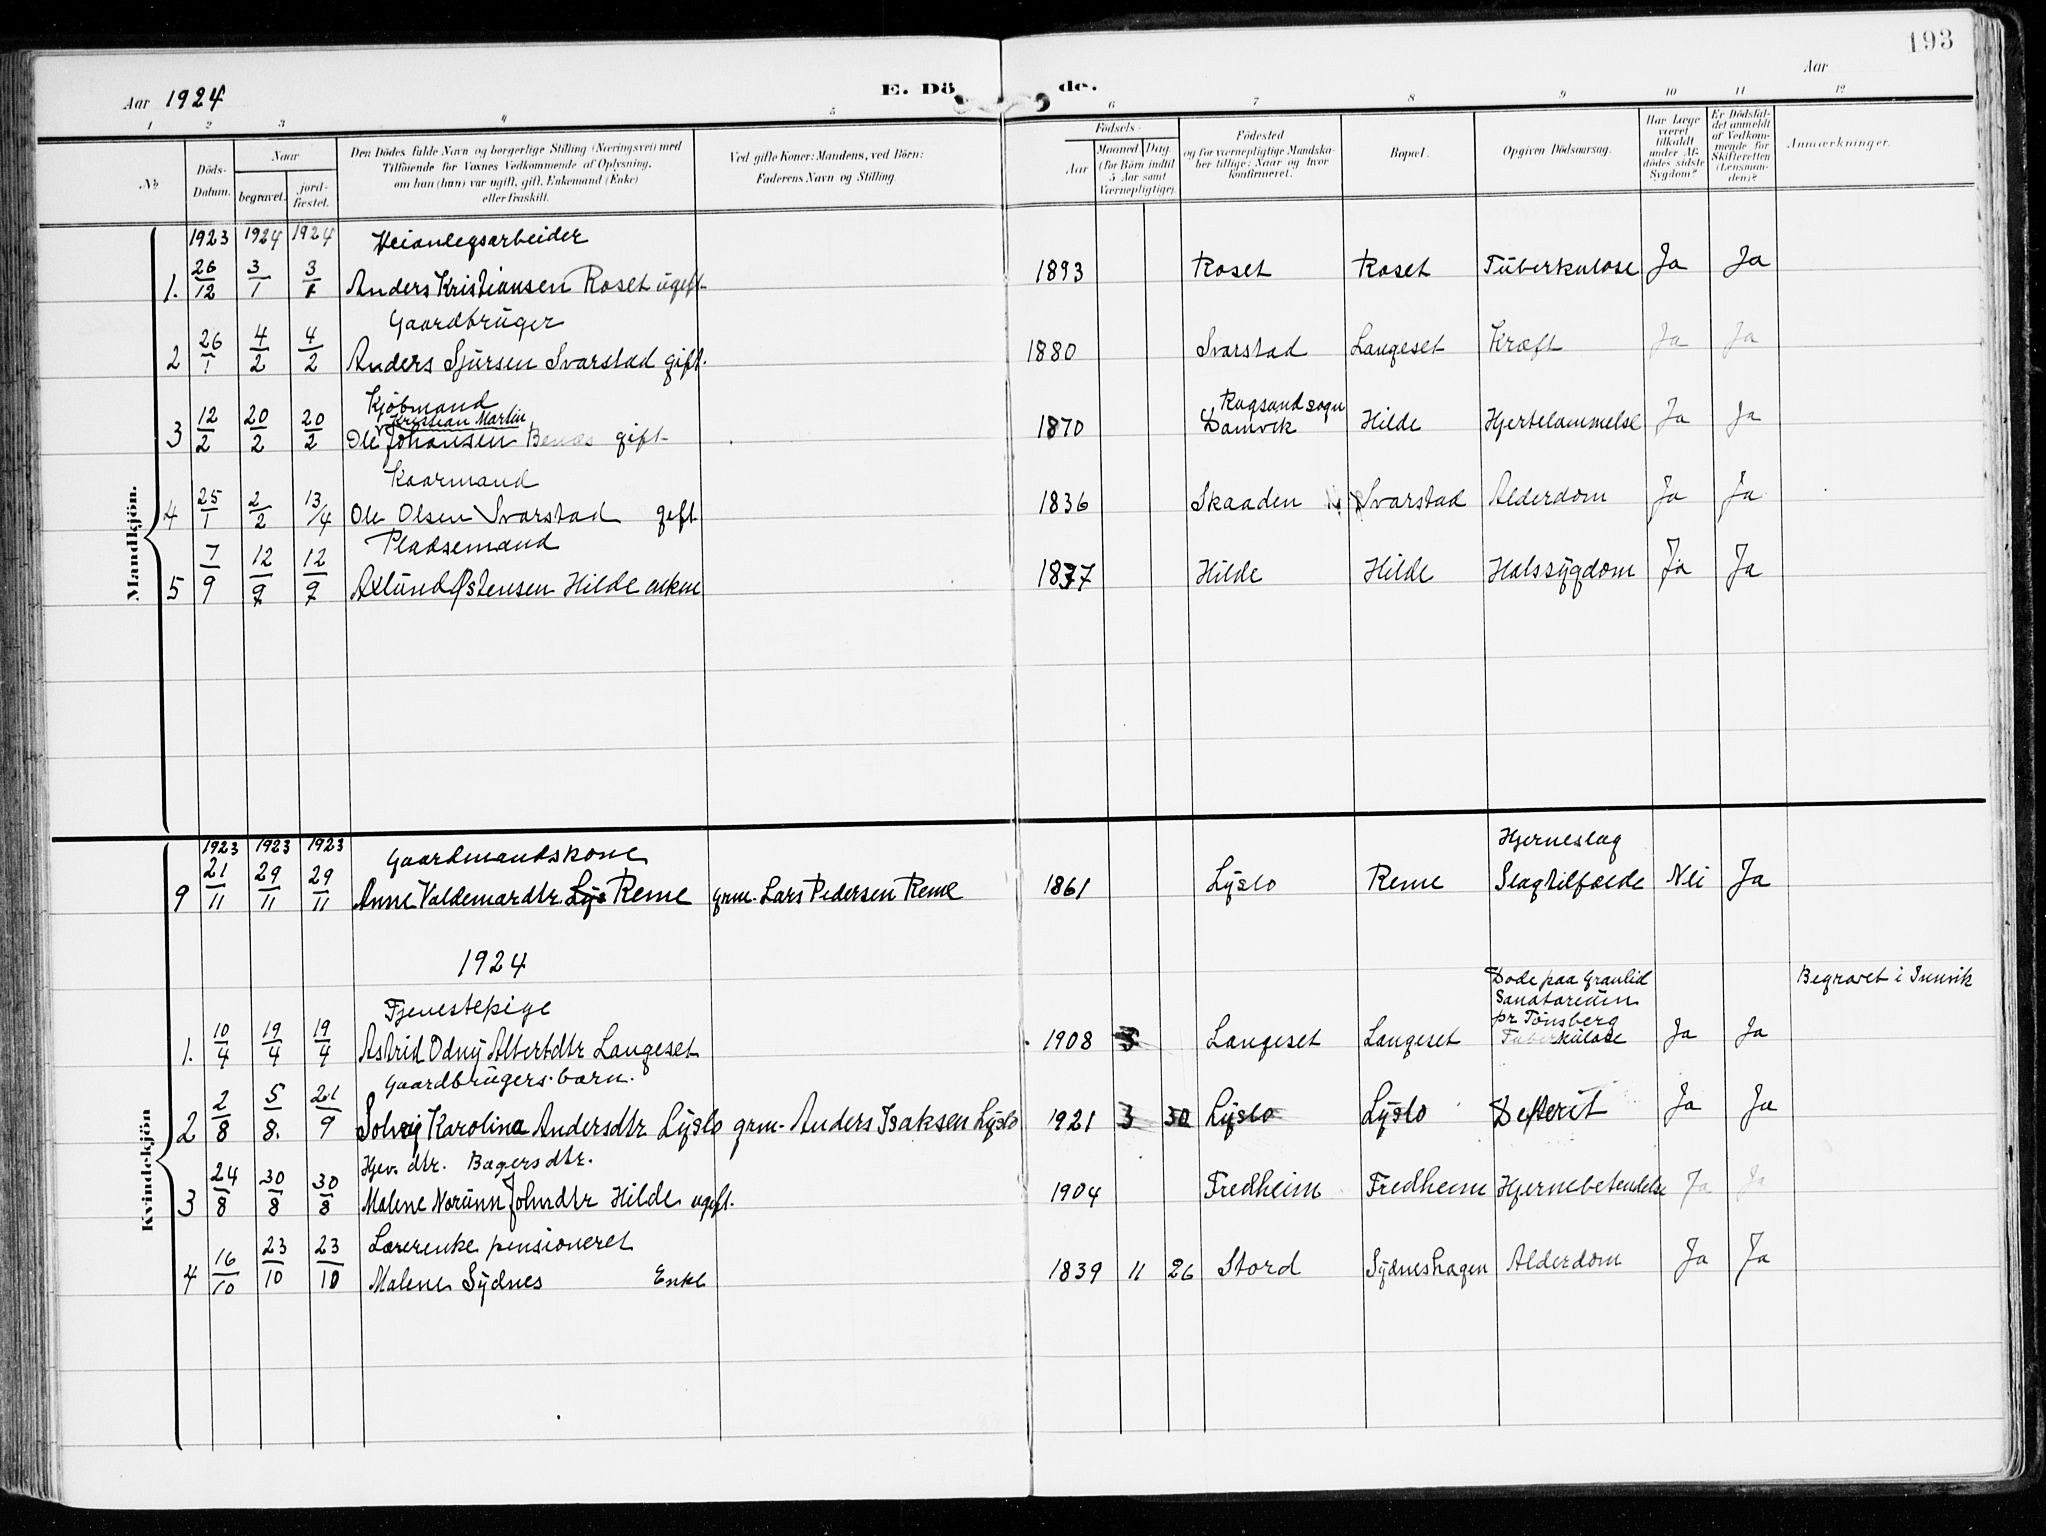 193
Aar 1924
E. Dö
de.
Aar
1 2 3 4 5 6 7 8 9 10 11 12
No
Döds-
Datum.
Naar
begravet.
jord-
fæstet.
Den Dödes fulde Navn og borgerlige Stilling (Næringsvei) med
Tilföiende for Voxnes Vedkommende af Oplysning,
om han (hun) var ugift, gift, Enkemand (Enke)
eller fraskilt.
Ved gifte Koner: Mandens, ved Börn:
Faderens Navn og Stilling
Födsels-
Aar
Maaned. Dag.
(for Börn indtil
5 Aar samt
Værnepligtige).
Födested
og for værnepligtige Mandska-
ber tillige: Naar og hvor
konfirmeret.
Bopæl.
Opgiven Dödsaarsag.
Har Læge
været
tilkaldt
under Af-
dödes sidste
Sygdom?
Er Dödsfal-
det anmeldt
af Vedkom-
mende for
Skifteretten
(Lensman-
den)?
Anmærkninger.
Mandkjön.
1923 1924 1924 Veianlegsarbeider
1. 26/12 3/1 3/1 Anders Kristiansen Roset ugift 1893 Roset Roset Tuberkulose Ja Ja
Gaardbruger
2 26/1 4/2 4/2 Anders Sjursen Svarstad gift. 1880 Svarstad Langeset Kræft Ja Ja
Kjöbmand
Kristian Martin
Rugsund sogn
3 12/2 20/2 20/2 Ole Johansen Benæs gift 1870 Damvik Hilde Hjertelammelse Ja Ja
Kaarmand
4 25/1 2/2 13/4 Ole Olsen Svarstad gift 1836 Skaaden Svarstad Alderdom Ja Ja
Pladsemand
5 7/9 12/9 12/9 Axlund Østensen Hilde enkem 1877 Hilde Hilde Halssygdom Ja Ja
Kvindekjön
1923 1923 1923 Gaardmandskone
Hjerneslag
9 21/11 29/11 29/11 Anne Valdemardtr Lys Reme grm. Lars Pedersen Reme 1861 Lyslo Reme Slagtilfælde Nei Ja
1924
Tjenestepige
Døde paa Granlid
Sanatorium
pr Tønsberg
Begravet i Innvik
1. 10/4 19/4 19/4 Astrid Odny Albertdtr Langeset 1908 Langeset Langeset Tuberkulose Ja Ja
Gaardbrugers barn.
2 2/8 5/8. 21/9 Solveig Karolina Andersdtr Lyslo grm. Anders Isaksen Lyslo 1921 3 30 Lyslo Lyslo Defterit Ja Ja
Hjev. dtr. Bagers dtr.
3 24/8 30/8 30/8 Malene Norunn Johndtr Hilde ugift. 1904 Fredheim Fredheim Hjernebetendelse Ja Ja
Lærerenke pensioneret
4 16/10 23/10 23/10 Malene Sydnes Enke 1839 11 26 Stord Sydneshagen Alderdom Ja Ja